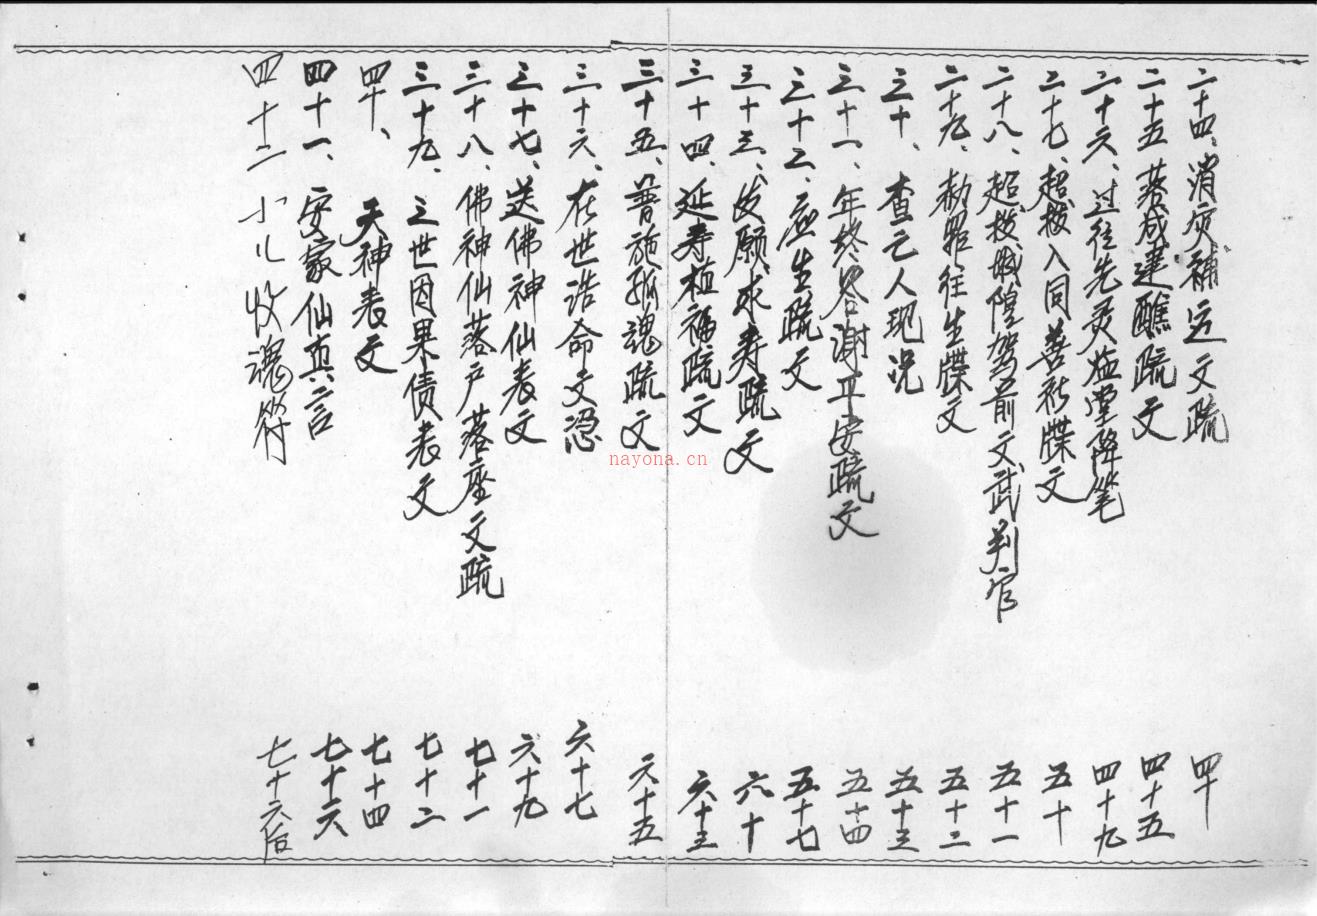 二十四、消灾補运文疏 四十
二十五 落成建醮疏文 四十五
二十六、过往先灵临堂降笔 四十九
二十七、超拔入同善社牒文 五十
二十八、超拔城隍驾前文武判官 五十一
二十九、赦罪往生牒文 五十二
三十、查亡人现况 五十三
三十一、年终答谢平安疏文 五十四
三十二、应生疏文 五十七
三十三、发願、求寿疏文 六十
三十四、延寿植福疏文 六十三
三十五、普施孤魂疏文 六十五
三十六、在世诰命文憑 六十七
三十七、送佛神仙表文 六十九
三十八、佛神仙落户落座文疏 七十一
三十九、三世因果债表文 七十二
四十、天神表文 七十四
四十一、安家仙真言 七十六
四十二 小儿收魂符 七十六后
nayona.cn